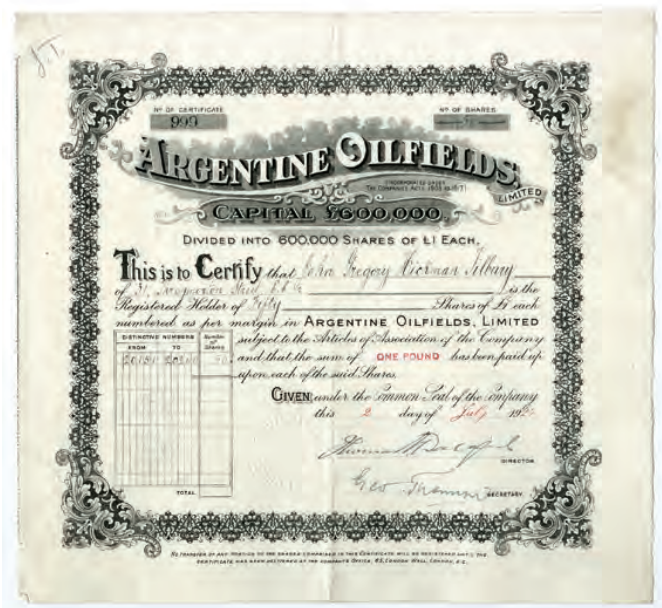 Nº OF CERTIFICATE
999
Nº OF SHARES
ARGENTINE OILFIELDS,
LIMITED
(INCORPORATED UNDER
THE COMPANIES ACTS, 1908 to 1917)
CAPITAL £600,000,
DIVIDED INTO 600,000 SHARES OF £1 EACH.
This is to Certify that John Gregory Hickman Silbury
of is the
Registered Holder of Fifty Shares of £1 each
numbered as per margin in ARGENTINE OILFIELDS, LIMITED
subject to the Articles of Association of the Company
and that the sum of ONE POUND has been paid up
upon each of the said Shares.
DISTINCTIVE NUMBERS
FROM TO
Number of Shares
50
TOTAL
GIVEN under the Common Seal of the Company
this 2 day of July
DIRECTOR
Geo. Thomson SECRETARY
NO TRANSFER OF ANY PORTION OF THE SHARES COMPRISED IN THIS CERTIFICATE WILL BE REGISTERED UNTIL THE
CERTIFICATE HAS BEEN DELIVERED AT THE COMPANY'S OFFICE, 65, LONDON WALL, LONDON, E.C.